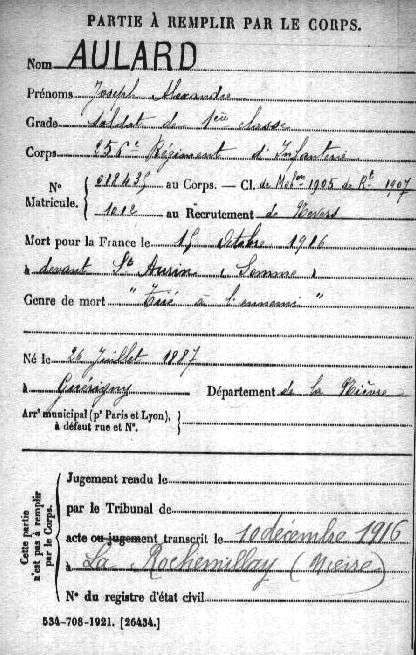 PARTIE À REMPLIR PAR LE CORPS.
Nom AULARD
Prénoms Joseph Alexandre
Grade soldat de 1ère classe
Corps 256e Régiment d'Infanterie
N° Matricule. { 01843 au Corps. — Cl. de Mobon 1905 de Rt 1907
1012 au Recrutement de Nevers
Mort pour la France le 15 Octobre 1916
à devant St Aurin (Somme)
Genre de mort "Tué à l'ennemi"
Né le 26 Juillet 1887
à Guérigny Département de la Nièvre
Arrt municipal (pr Paris et Lyon), à défaut rue et N°. }
Cette partie n'est pas à remplir par le Corps.
Jugement rendu le
par le Tribunal de
acte ou jugement transcrit le 10 décembre 1916
à La Rochemillay (Nièvre)
N° du registre d'état civil
534-708-1921. [26434.]